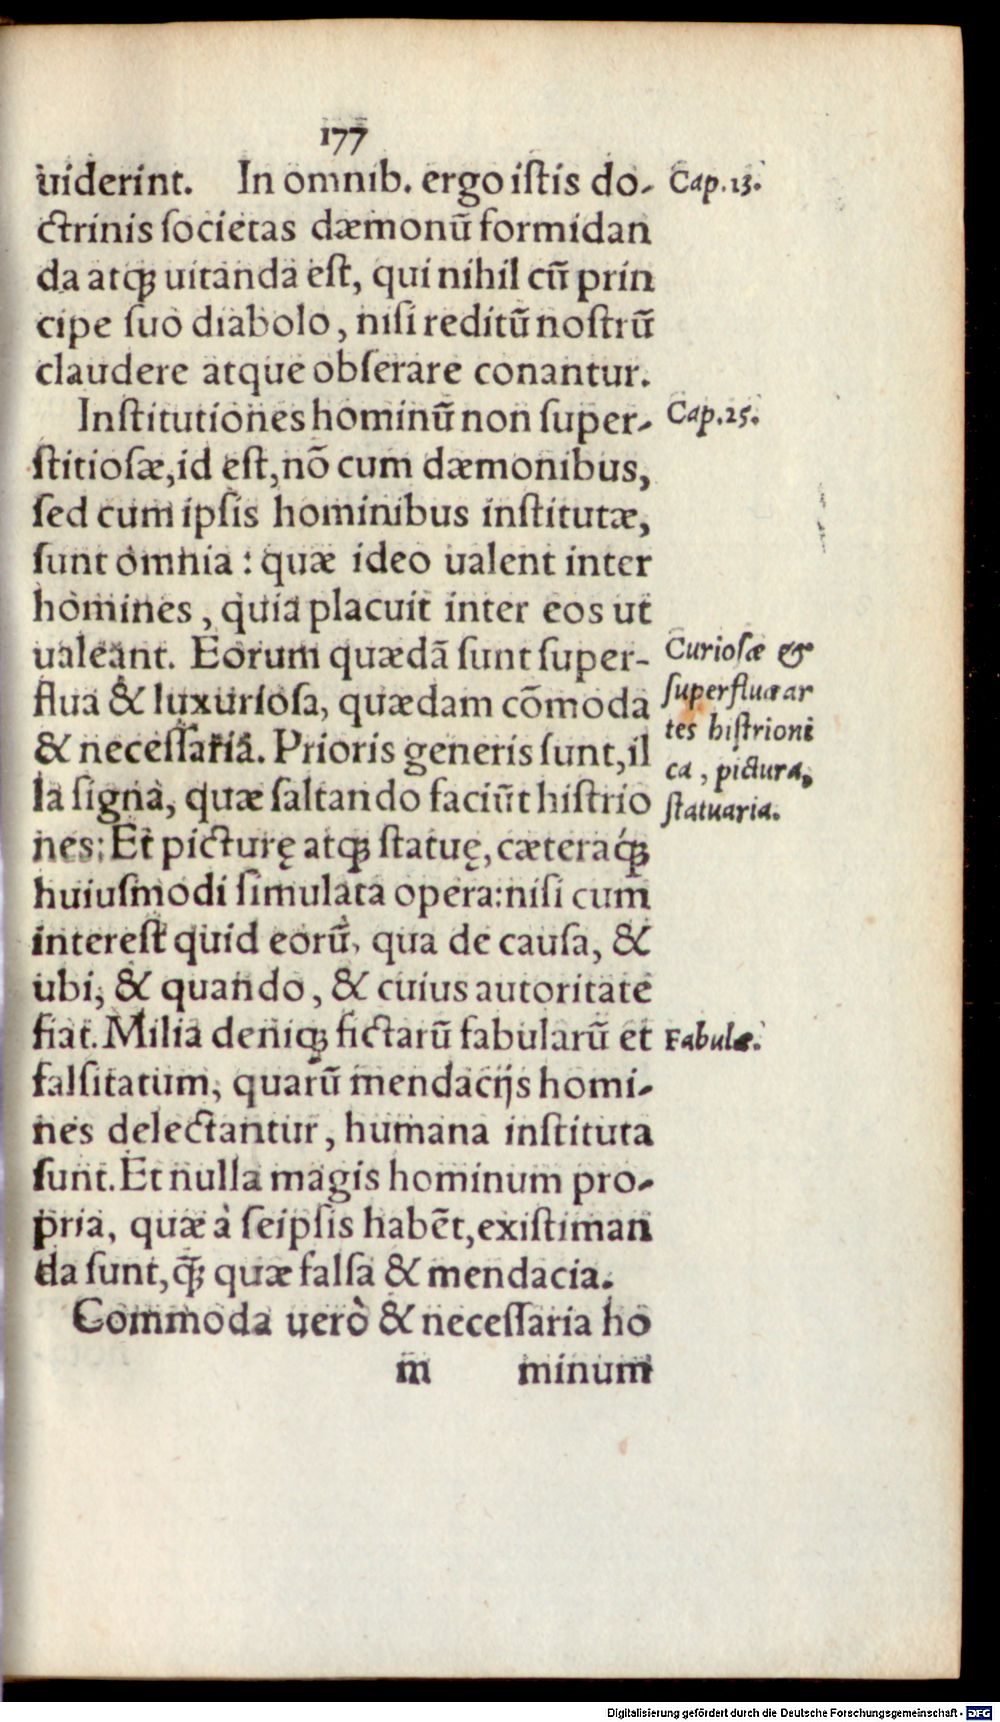 177
uiderint. In omnib. ergo istis do-
ctrinis societas dæmonū formidan
da atq; uitanda est, qui nihil cū prin
cipe suo diabolo, nisi reditū nostrū
claudere atque obserare conantur.
Institutiones hominū non super-
stitiosæ, id est, nō cum dæmonibus,
sed cum ipsis hominibus institutæ,
sunt omnia: quæ ideo ualent inter
homines, quia placuit inter eos ut
ualeant. Eorum quædā sunt super-
flua & luxuriosa, quædam cōmoda
& necessaria. Prioris generis sunt, il
la signa, quæ saltando faciūt histrio
nes: Et picturę atq; statuę, cæteraq́;
huiusmodi simulata opera: nisi cum
interest quid eorū, qua de causa, &
ubi, & quando, & cuius autoritate
fiat. Milia deniq; fictarū fabularū et
falsitatum, quarū mendacijs homi-
nes delectantur, humana instituta
sunt. Et nulla magis hominum pro-
pria, quæ à seipsis habēt, existiman
da sunt, q̄; quæ falsa & mendacia.
Commoda uerò & necessaria ho
m minum
Cap. 13.
Cap. 25.
Curiosæ &
superfluæ ar
tes histrioni
ca, pictura,
statuaria.
Fabulæ.
Digitalisierung gefördert durch die Deutsche Forschungsgemeinschaft - DFG